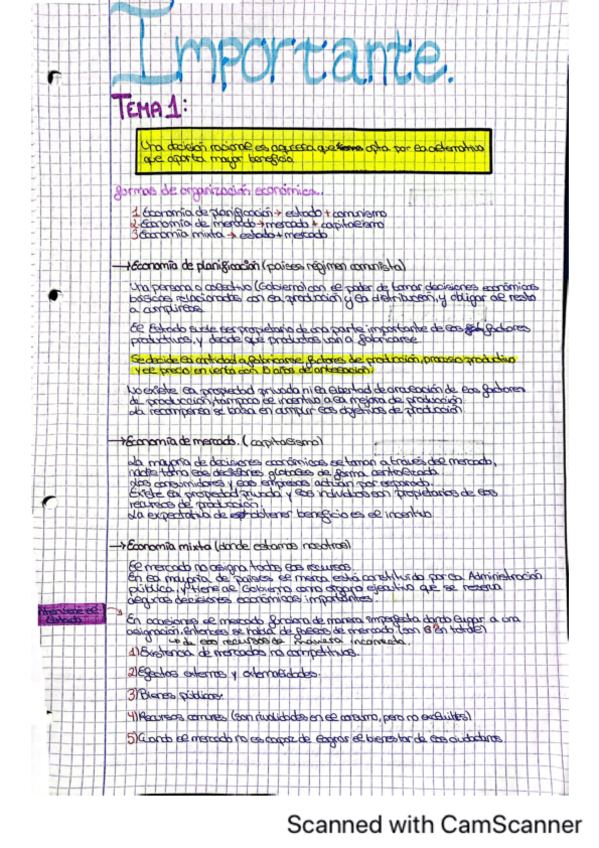 Importante.
TEMA 1:
Una decisión racional es aquella que opta por la alternativa
que aporta mayor beneficio
formas de organización económica..
1 Economía de planificación → estado + comunismo
2 Economía de mercado → mercado + capitalismo
3 Economía mixta → estado + mercado
→ Economía de planificación (países régimen comunista)
Una persona o colectivo (Gobierno) con el poder de tomar decisiones económicas
básicas relacionadas con la producción y la distribución, y obligar al resto
a cumplirlas
El Estado suele ser propietario de una parte importante de los factores
productivos, y decide que productos van a fabricarse
Se decide la cantidad a fabricarse, factores de producción, proceso productivo
y el precio en venta con 10 años de antelación.
No existe la propiedad privada ni la libertad de de los factores
de producción, tampoco el incentivo a la mejora de producción.
La recompensa se basa en cumplir los objetivos de producción
→ Economía de mercado. (capitalismo)
La mayoría de decisiones económicas se toman a través del mercado,
nadie toma las decisiones globales de forma centralizada
Los consumidores y las empresas actúan por separado.
Existe la propiedad privada y los individuos son propietarios de los
recursos de producción
La expectativa de obtener beneficio es el incentivo
→ Economía mixta (donde estamos nosotros)
El mercado no asigna todos los recursos.
En la mayoría de países el marco está constituido por la Administración
pública, y tiene al Gobierno como órgano ejecutivo que se reserva
algunas decisiones económicas importantes.
Estado
En ocasiones el mercado funciona de manera imperfecta dando lugar a una
asignación, entonces se habla de fallos de mercado (son en total)
↳ de los recursos de manera incorrecta.
1) Existencia de mercados no competitivos.
2) Efectos externos y externalidades.
3) Bienes públicos.
4) Recursos comunes (son rivalidades en el consumo, pero no excluibles)
5) Cuando el mercado no es capaz de lograr el bienestar de los ciudadanos
Scanned with CamScanner